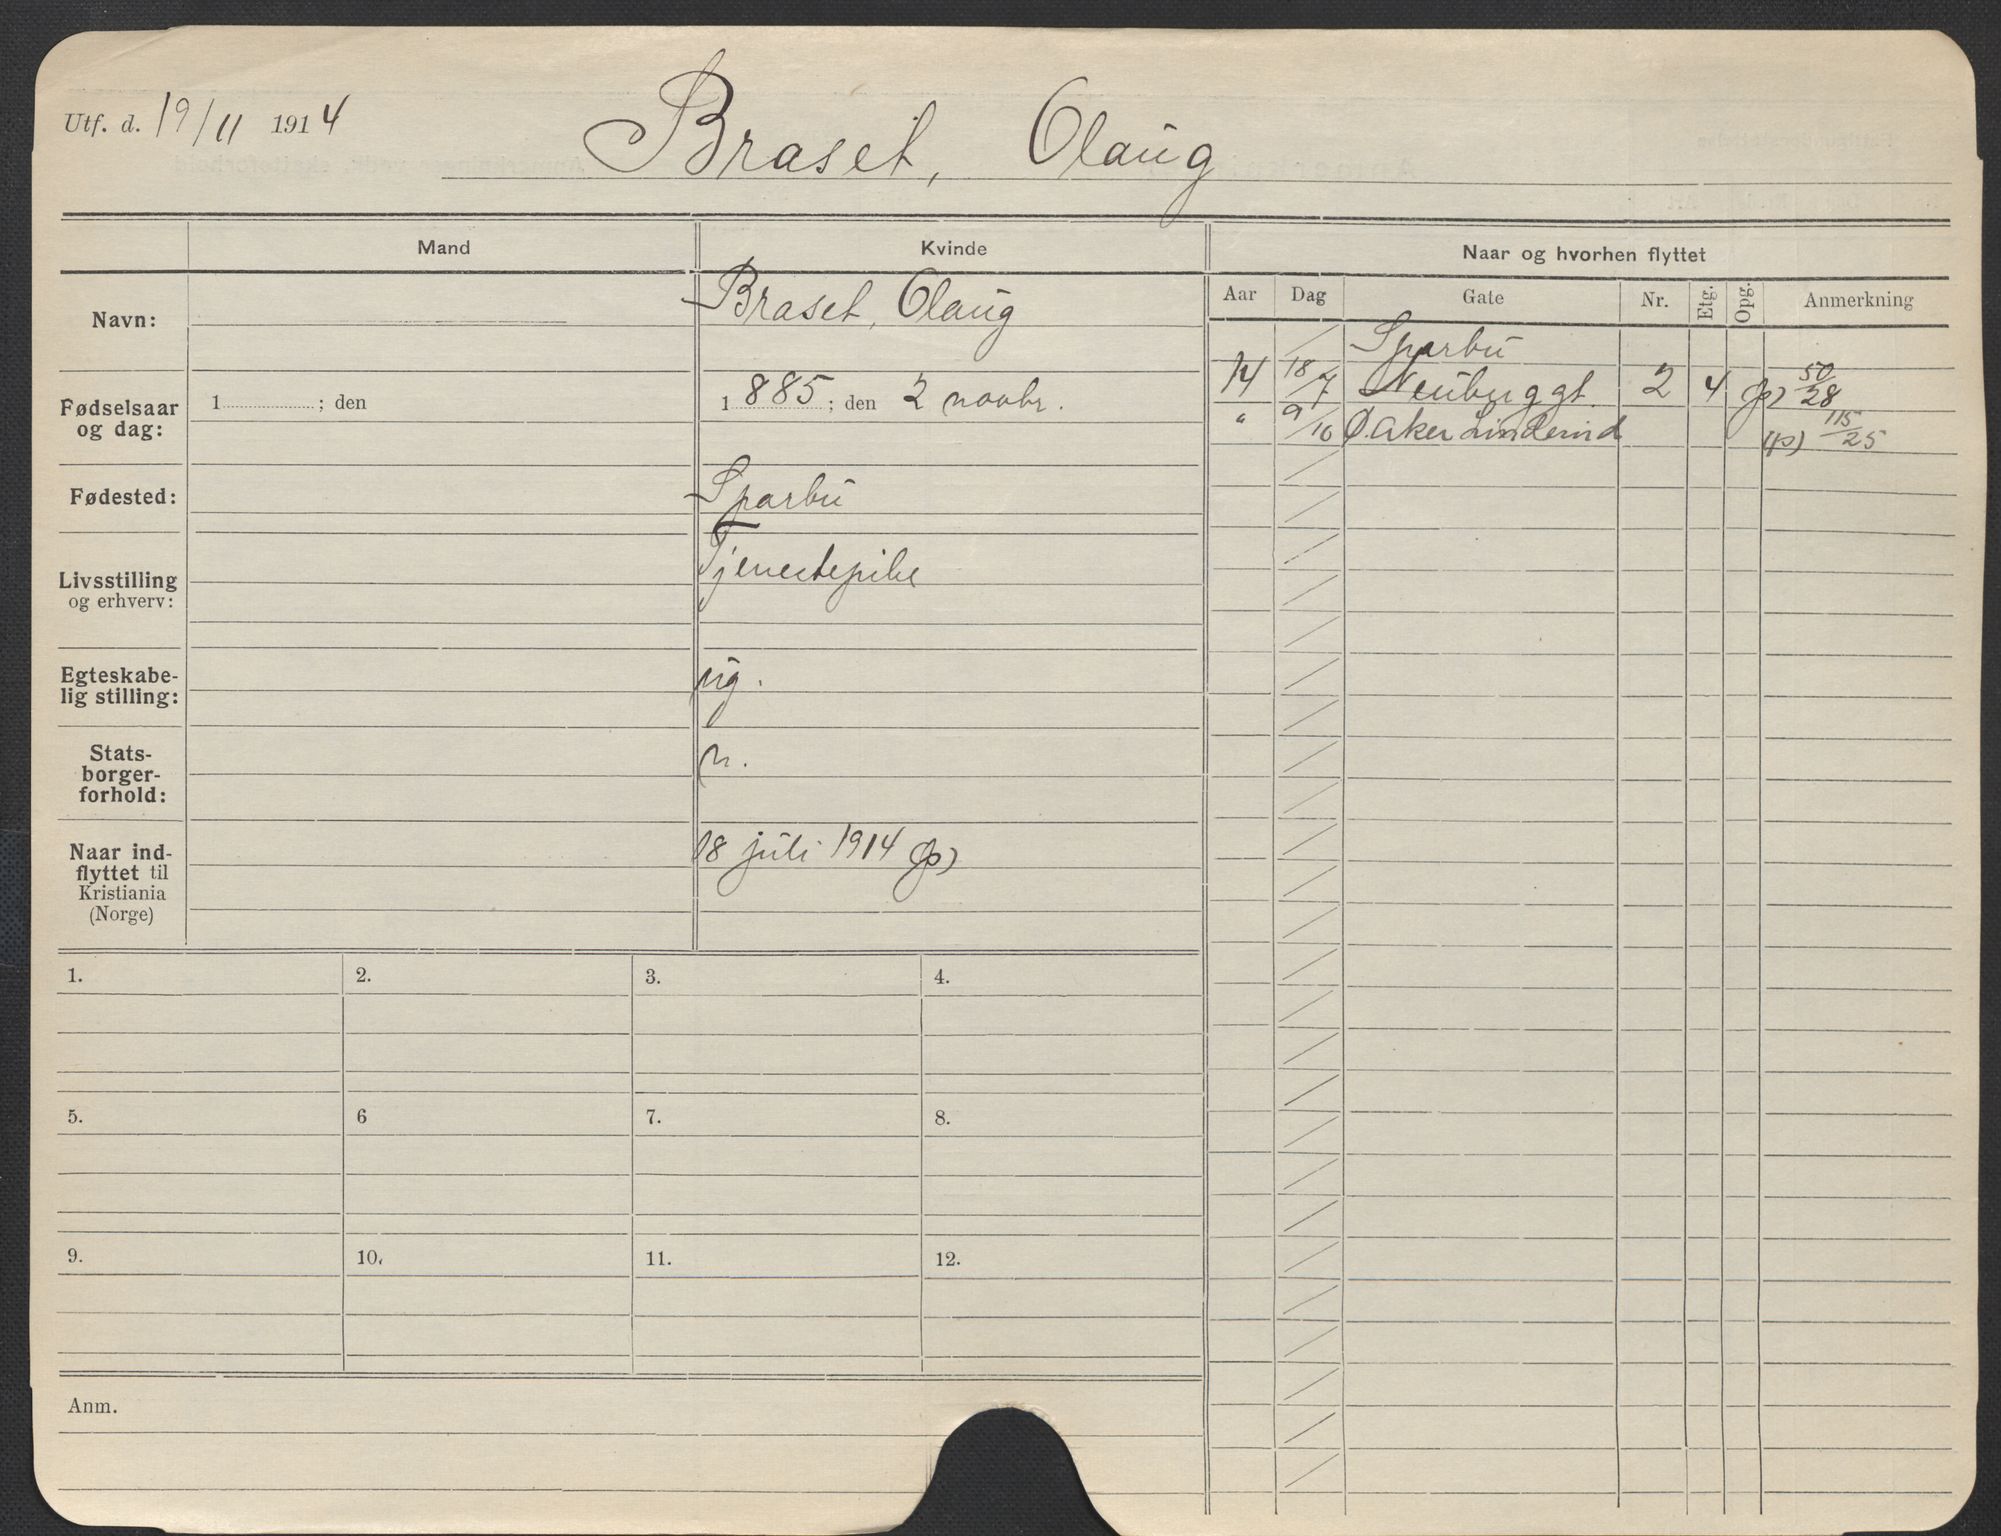 Utf. d. 19/11 1914
Braset, Olaug
Mand
Kvinde
Naar og hvorhen flyttet
Aar Dag Gate Nr. Etg. Opg. Anmerkning
Navn:
Braset, Olaug
Fødselsaar
og dag:
1 ; den
1885; den 2 novbr.
Fødested:
Sparbu
Livsstilling
og erhverv:
Tjenestepike
Egteskabe-
lig stilling:
ug.
Stats-
borger-
forhold:
n.
Naar ind-
flyttet til
Kristiania
(Norge)
18 juli 1914 (p)
Sparbu
14 18/7 Neubuggt. 2 4 (p) 50/28
" 9/10 Ø. Aker Linderud (p) 115/25
1. 2. 3. 4.
5. 6 7. 8.
9. 10. 11. 12.
Anm.